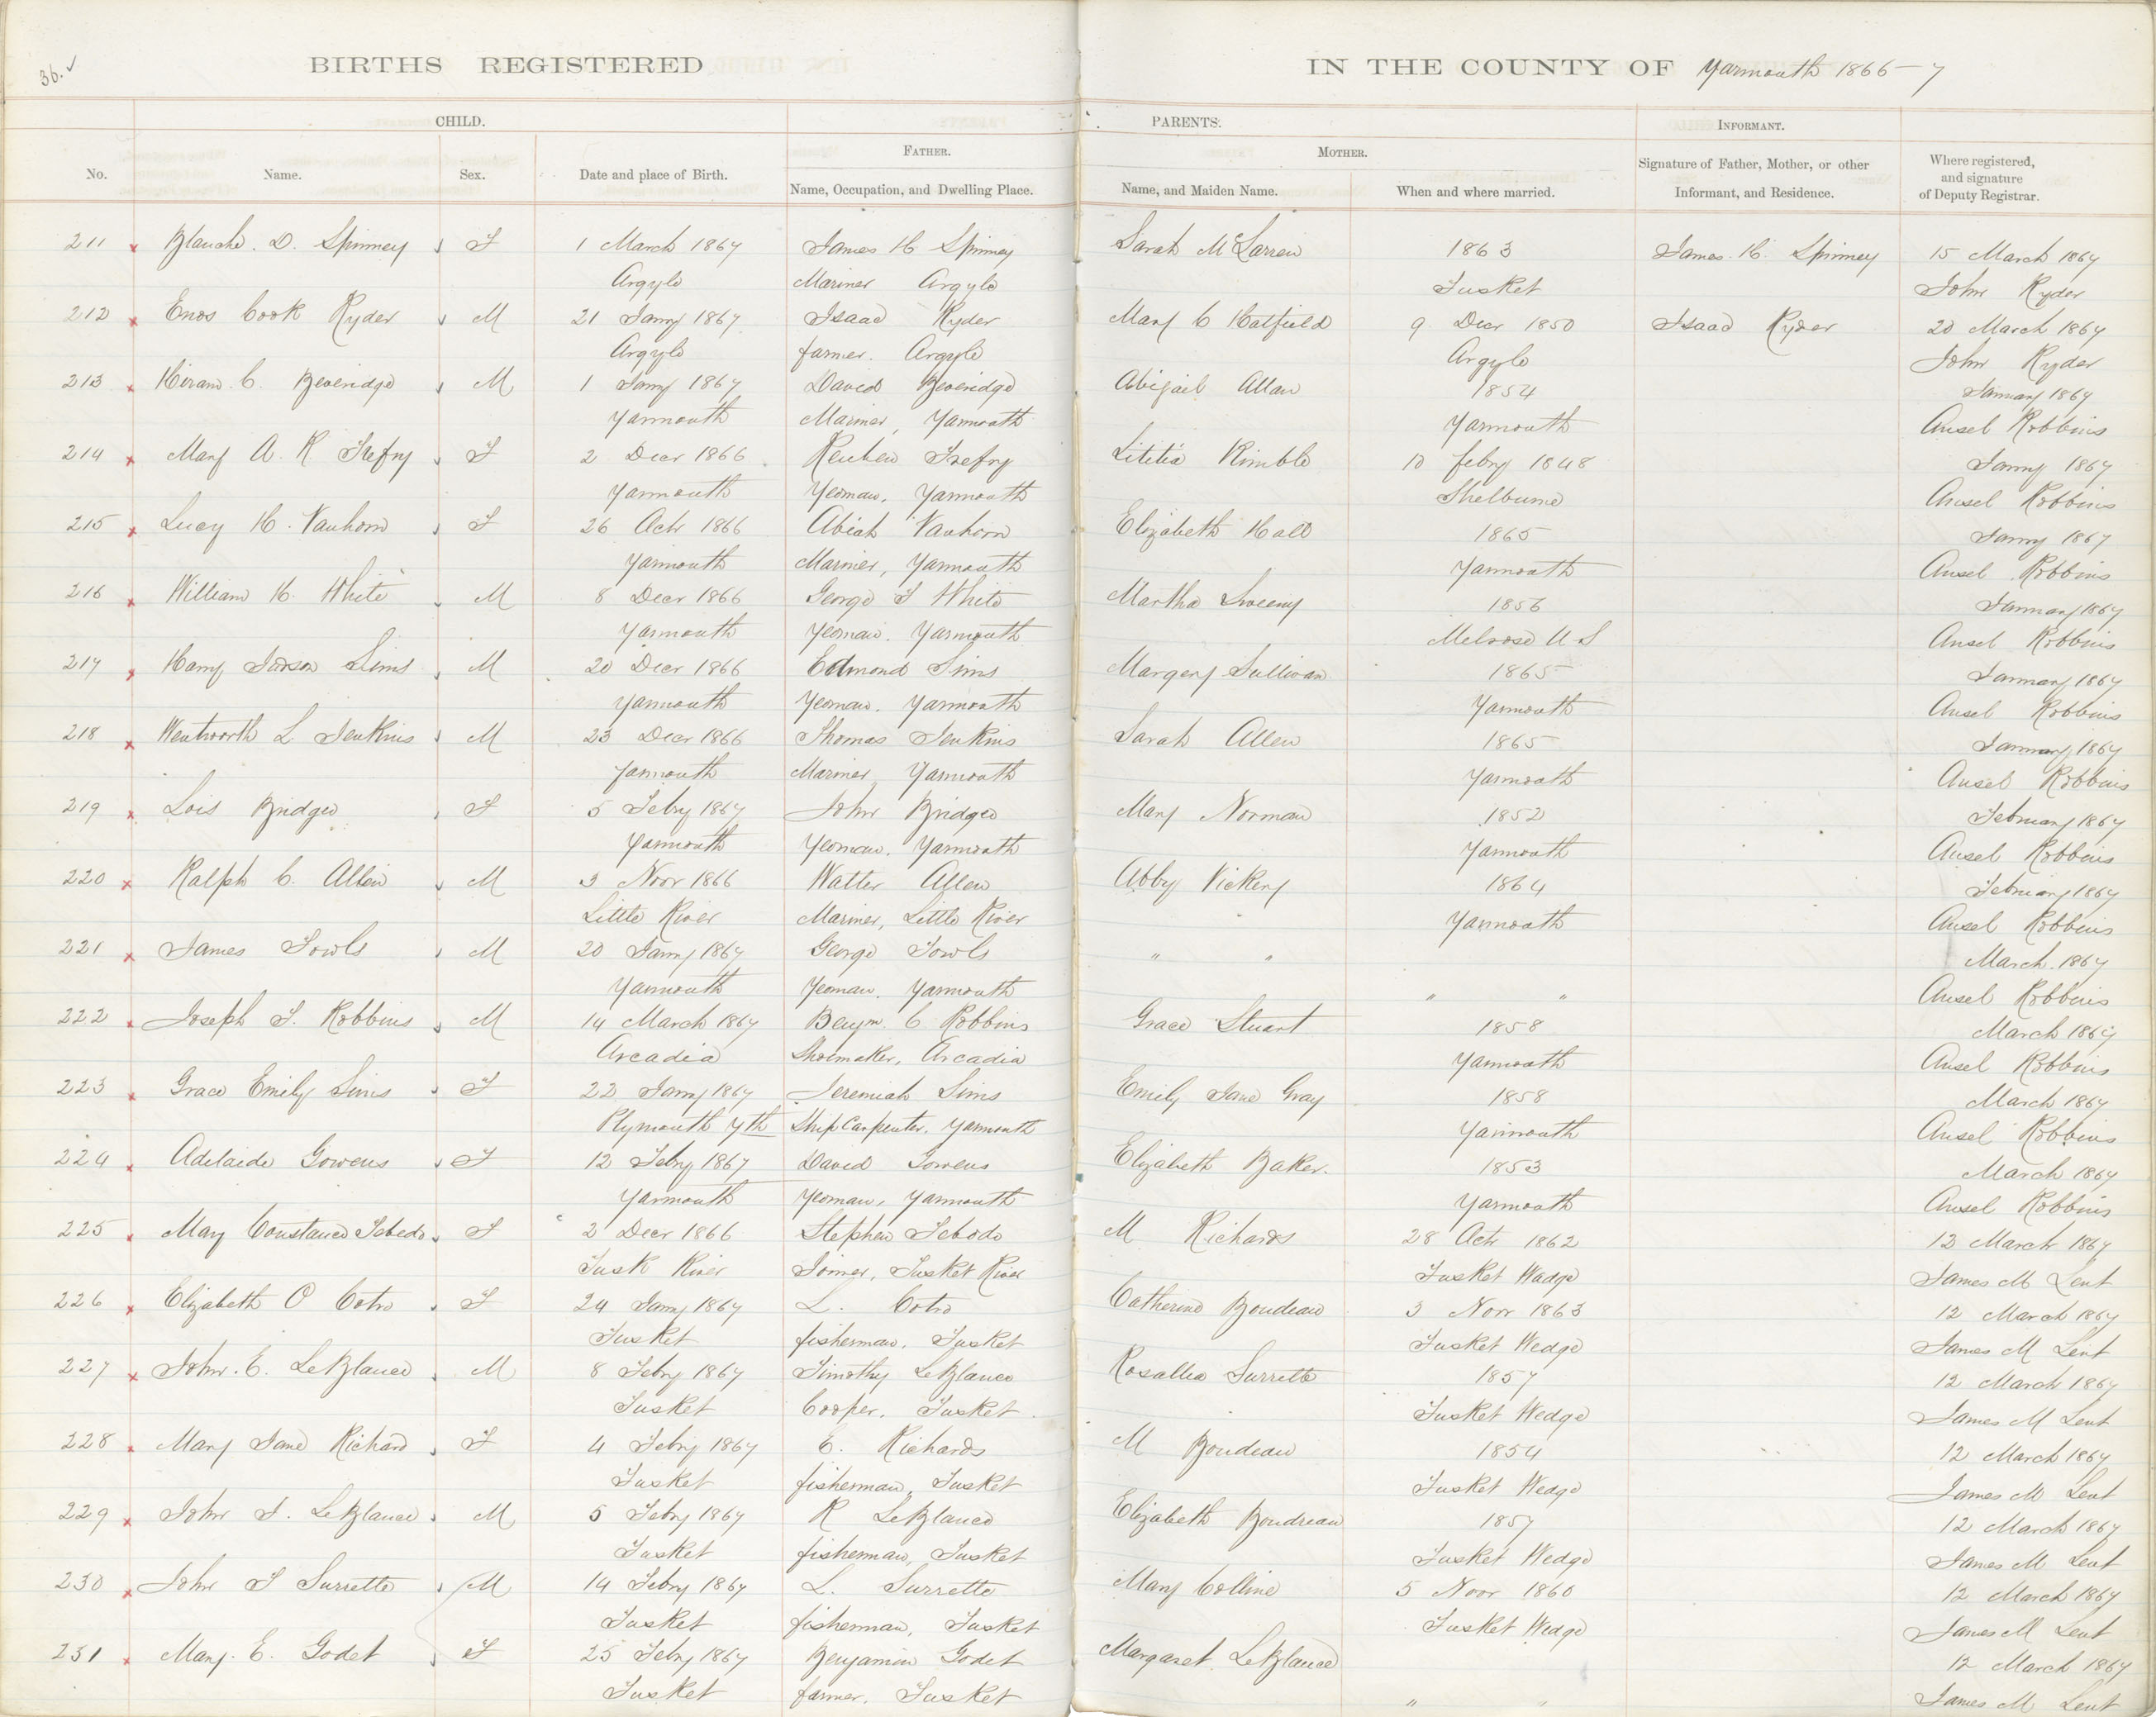 36.✓
BIRTHS REGISTERED IN THE COUNTY OF Yarmouth 1866-7
CHILD. PARENTS. INFORMANT.
FATHER. MOTHER.
No. Name. Sex. Date and place of Birth. Name, Occupation, and Dwelling Place. Name, and Maiden Name. When and where married. Signature of Father, Mother, or other Informant, and Residence. Where registered, and signature of Deputy Registrar.
211 Blanche. D. Spinney F 1 March 1867 James H Spinney Sarah McLarren 1863 James. H. Spinney 15 March 1867
Argyle Mariner Argyle Tusket John Ryder
212 Enos Cook Ryder M 21 Jany 1867 Isaac Ryder Mary C Hatfield 9 Decr 1850 Isaac Ryder 20 March 1867
Argyle farmer. Argyle Argyle John Ryder
213 Hiram. C. Beveridge M 1 Jany 1867 David Beveridge Abigail Allan 1854 January 1867
Yarmouth Mariner, Yarmouth Yarmouth Ansel Robbins
214 Mary A. R Trefry F 2 Decr 1866 Reuben Trefry Lititia Kimble 10 febry 1848 Janry 1867
Yarmouth Yeoman. Yarmouth Shelburne Ansel Robbins
215 Lucy H. Vanhorn F 26 Octr 1866 Abiah Vanhorn Elizabeth Hall 1865 Janry 1867
Yarmouth Mariner, Yarmouth Yarmouth Ansel Robbins
216 William H. White M 8 Decr 1866 George F White Martha Sweeny 1856 January 1867
Yarmouth Yeoman. Yarmouth Melrose U.S Ansel Robbins
217 Harry Judson Sims M 20 Decr 1866 Edmond Sims Margery Sullivan 1865 January 1867
Yarmouth Yeoman. Yarmouth Yarmouth Ansel Robbins
218 Wentworth L. Jenkins M 23 Decr 1866 Thomas Jenkins Sarah Allen 1865 January 1867
Yarmouth Mariner Yarmouth Yarmouth Ansel Robbins
219 Lois Bridgeo F 5 Febry 1867 John Bridgeo Mary Norman 1852 February 1867
Yarmouth Yeoman. Yarmouth Yarmouth Ansel Robbins
220 Ralph C. Allen M 3 Novr 1866 Walter Allen Abby Vickery 1864 February 1867
Little River Mariner, Little River Yarmouth Ansel Robbins
221 James Fowls M 20 Jany 1867 George Fowls " " March. 1867
Yarmouth Yeoman. Yarmouth " " Ansel Robbins
222 Joseph F. Robbins M 14 March 1867 Benjm. C Robbins Grace Stuart 1858 March 1867
Arcadia Shoemaker, Arcadia Yarmouth Ansel Robbins
223 Grace Emily Sims F 22 Jany 1867 Jeremiah Sims Emily Jane Gray 1858 March 1867
Plymouth Yth Ship Carpenter. Yarmouth Yarmouth Ansel Robbins
224 Adelaide Gowens F 12 Febry 1867 David Gowens Elizabeth Baker. 1853 March 1867
Yarmouth Yeoman, Yarmouth Yarmouth Ansel Robbins
225 Mary Constance Tebedo F 2 Decr 1866 Stephen Tebodo M Richards 28 Octr 1862 12 March 1867
Tusk River Joiner, Tusket River Tusket Wadge James M Lent
226 Elizabeth O Cotro F 24 Jany 1867 L. Cotro Catherine Boudeau 3 Novr 1863 12 March 1867
Tusket fisherman. Tusket Tusket Wedge James M Lent
227 John. E. LeBlance M 8 Febry 1867 Timothy LeBlance Rosallea Surrette 1857 12 March 1867
Tusket Cooper. Tusket Tusket Wedge James M Lent
228 Mary Jane Richard F 4 Febry 1867 E. Richards M Boudeau 1854 12 March 1867
Tusket fisherman, Tusket Tusket Wedge James M Lent
229 John J. LeBlance M 5 Febry 1867 R LeBlance Elizabeth Boudreau 1857 12 March 1867
Tusket fisherman, Tusket Tusket Wedge James M Lent
230 John F Surrette M 14 Febry 1867 L. Surrette Mary Colline 5 Novr 1860 12 March 1867
Tusket fisherman, Tusket Tusket Wedge James M Lent
231 Mary. E. Godet F 25 Febry 1867 Benjamin Godet Margaret LeBlance 12 March 1867
Tusket farmer. Tusket " " James M Lent